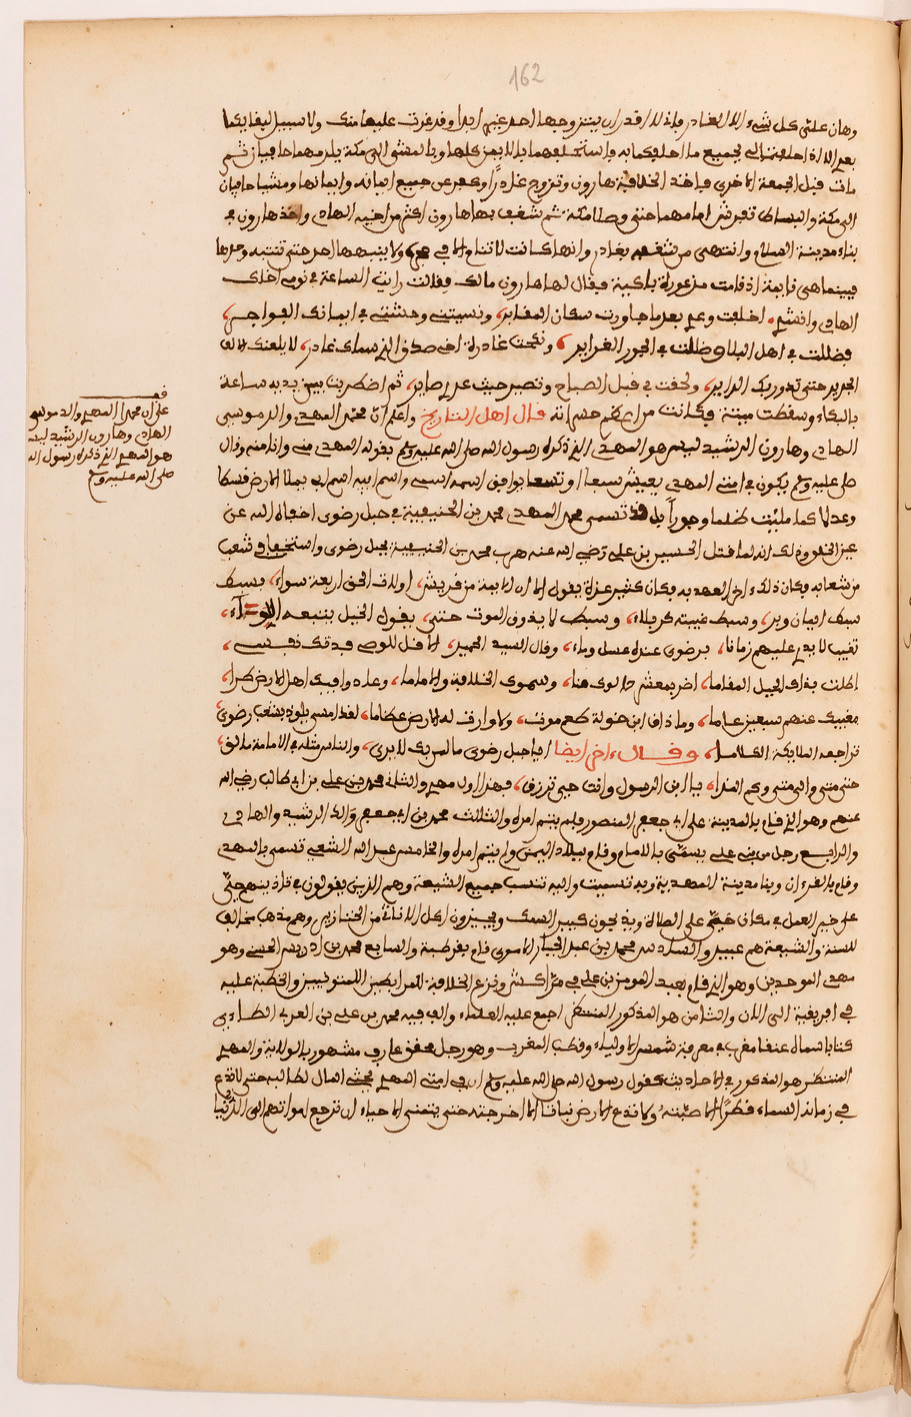 162
وهان علي كل شيء الا الغادر
بعد الا اذا حلفتما لي بجميع ما احلفكما به فاستحلفهما بالايمان كلها وبالمشي الى مكة
مات قبل الجمعة الاخرى فاخذ الخلافة هارون وتزوج غادرا وكفر عن جميع ايمانه وايمانها ومشيا حافيان
الى مكة والبساط تفرش امامهما حتى وصلا مكة ثم شغف بها هارون اكثر من اخيه الهادي واخذ هارون في
بناء مدينة السلام وانتهى من شغفه بغادر وانها كانت لا تنام الا في حجره ولا ينبهها احد حتى تنتبه وحدها
فبينما هي نايمة اذ قامت مذعورة باكية فقال لها هارون مالك فقالت رايت الساعة في نومي اخاك
الهادي وانشد اخلفت وعدي بعد ما جاورت سكان المقابر ونسيتني وحنثت في ايمانك الفواجر
فظللت في اهل البلاء وظللت في الحور الغراير ونكحت غادرة اخي صدق الذي سماك غادر لا يهنك الالف
الجديد حتى تدور بك الدواير ولحقت بي قبل الصباح وتصير حيث غدوت صاير ثم اضطربت بين يديه ساعة
بالبكاء وسقطت ميتة فكانت من اعظم حسراته قال اهل التاريخ واعلم ان محمد المهدي والد موسى
الهادي وهارون الرشيد ليس هو المهدي الذي ذكره رسول الله صلى الله عليه وسلم بقوله المهدي مني وانا منه وقال
صلى عليه وسلم يكون في امتي المهدي يعيش سبعا او تسعا يوافق اسمه اسمي واسم ابيه اسم ابي يملا الارض قسطا
وعدلا كما مليت ظلما وجورا بل قد تسمى محمد المهدي محمد بن الحنفية في جبل رضوى اخفاه الله عن
عين الخلق وذلك انه لما قتل الحسين بن علي رضي الله عنه هرب محمد بن الحنفية بجبل رضوى واستخفى في شعب
من شعابه وكان ذلك اخر العهد به وكان كثير عزة يقول الا ان الايمة من قريش اولات الحق اربعة سواء فسبط
سبط ايمان وبر وسبط غيبته كربلاء وسبط لا يذوق الموت حتى يقود الخيل يتبعه اللواء
تغيب لا يرى عليهم زمانا برضوى عنده عسل وماء وقال السيد الحميري الا قل للوصي فدتك نفسي
اطلت بذاك الجبل المقاما اضر بمعشر والوك منا وسموك الخليفة والاماما وعادوا فيك اهل الارض طرا
مغيبك عنهم سبعين عاما وما ذاق ابن خولة طعم موت ولا وارت له الارض عظاما لقد امسى بشعب رضوى
تراجعه الملايكة الكلاما وقال اخر ايضا ايا جبل رضوى ما لمن بك لا يرى
حتى متى والى متى وكم المدا يا ابن الرسول وانت حي ترزق فهذا اول مهدي والثاني محمد بن علي بن ابي طالب رضي الله
عنهم وهو الذي قام بالمدينة على ابي جعفر المنصور ولم يتم امره والثالث محمد بن ابي جعفر والد الرشيد والهادي
والرابع رجل من بني علي يسمى بالامام وقام ببلاد اليمن ولم يتم امره والخامس عبيد الله الشيعي تسمى بالمهدي
وقام بالقيروان وبنا مدينة المهدية وبه تسميت واليه تنتسب جميع الشيعة وهم الذين يقولون في
على خير العمل في مكان حي على الصلاة
للسنة والشيعة هم عبيد والسادس محمد بن عبد الجبار الاموي قام بقرطبة والسابع محمد بن ادريس الحسني وهو
مهدي الموحدين وهو الذي قام بعبد المومن بن علي في مراكش ونزع الخلافة للمرابطين اللمتونيين والخطبة عليه
في افريقية الى الان والثامن هو المذكور المنتظر اجمع عليه العلماء والف فيه محمد بن علي بن العربي الطاءي
كتابا سماه عنقا مغرب في معرفة شمس الاولياء وقطب المغرب وهو رجل محقق عارف مشهور بالولاية والمهدي
المنتظر هو المذكور في الاحاديث كقول رسول الله صلى الله عليه وسلم ان في امتي المهدي يحثي المال لطالبه حتى لا تدع
في زمانه السماء قطرا الا صبته ولا تدع الارض نباتا الا اخرجته حتى يتمنى الاحياء ان ترجع امواتهم الى الدنيا
قف
على ان محمدا المهدي والد موسى
الهادي وهارون الرشيد ليس
هو المهدي الذي ذكره رسول الله
صلى الله عليه وسلم